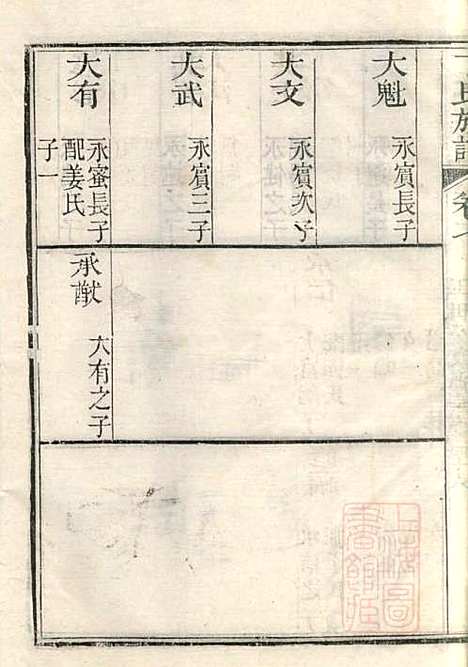 氏族譜
卷
大魁
永賓長子
大文
永賓次子
大武
永賓三子
大有
永蜜長子
配姜氏
子一
承猷
大有之子
上海圖
書館藏